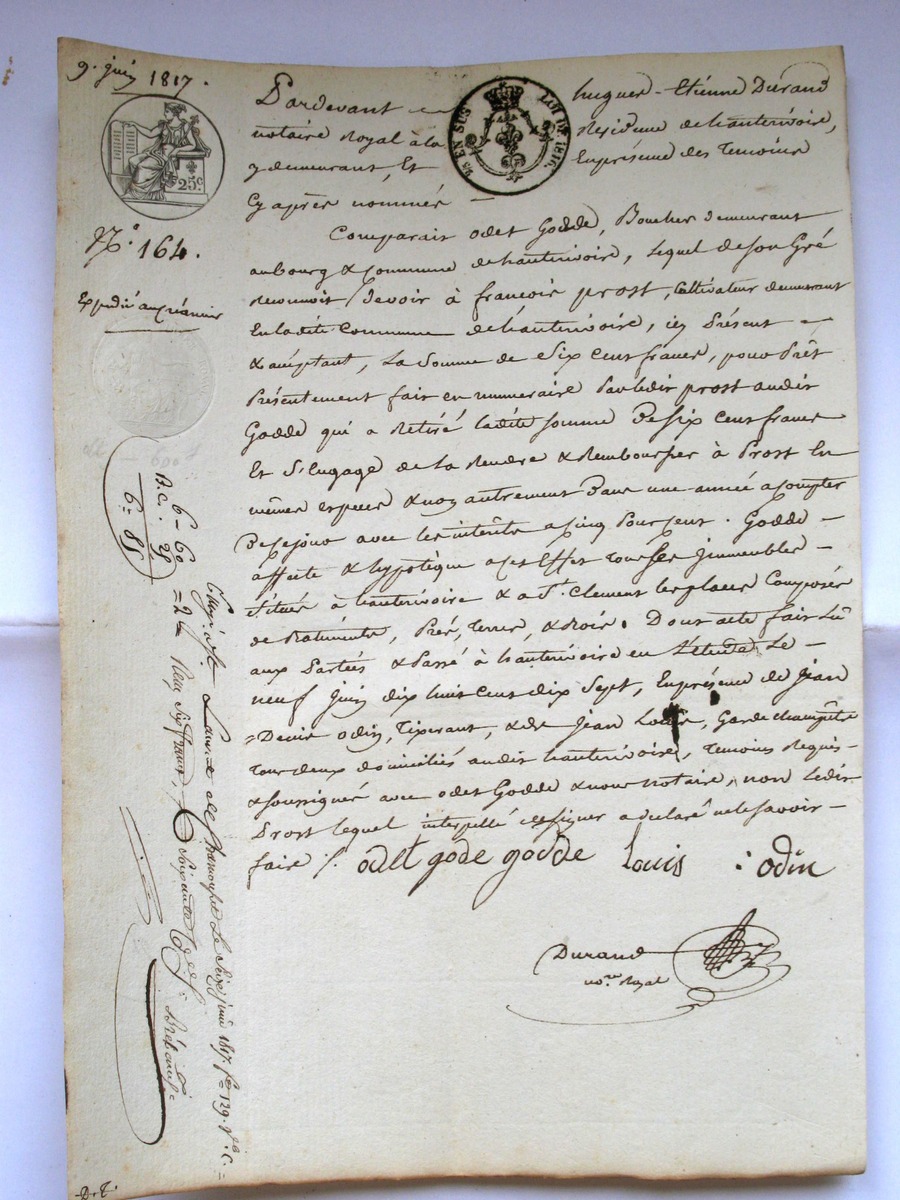 9. juin 1817.
25 c
N.º 164.
Expedié au créancier
EN SUS
LOI DE 1816
Pardevant
hugues-Etienne Durand
notaire Royal à la
Résidence de hauterivoire,
y demeurant, Et
En présence des Temoins
Cy après nommés
Comparait odet Godde, Boucher demeurant
au bourg & commune de hauterivoire, Lequel de son Gré
Reconnoit devoir à françois prost, Cultivateur demeurant
En ladite Commune de hauterivoire, icy Présent
& acceptant, La Somme de Six Cent francs, pour Prêt
Présentement fait en numeraire Par ledit prost audit
Godde qui a Retiré ladite somme De six Cent francs
Et S'Engage de La Rendre & Rembourser à Prost En
mêmes especes & non autrement Dans une année a compter
De ce jour avec les intérêts a Cinq Pour cent. Godde
affecte & hypotèque a cet Effet tous Ses Immeubles
Situés à hauterivoire & a St. Clement les places Composés
de Batiments, Prés, Terres, & Bois. Dont acte fait Lû
aux Parties & Passé à hauterivoire en L'étude Le
neuf Juin dix huit cent dix Sept, En présence de Jean
Denis odin, Tixerant, & de Jean Louis, Garde champêtre
Tous deux domiciliés audit hauterivoire, Temoins Requis
& soussignés avec odet Godde & nous notaire, non Ledit
Prost lequel interpellé de signer a declaré ne le savoir
faire /.
odet gode godde
Louis
odin
Durand
no.re Royal
6 - 60
B.c. 25
6 = 85